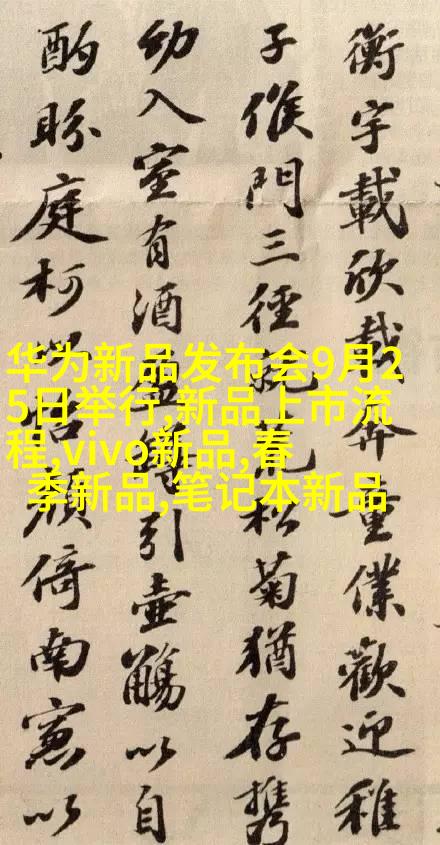 衡宇載欣載奔童僕歡迎稚
子候門三徑就荒松菊猶存携
幼入室有酒盈樽引壺觴以自
酌眄庭柯以怡顏倚南窓以
华为新品发布会9月2
5日举行,新品上市流
程,vivo新品,春
季新品,笔记本新品